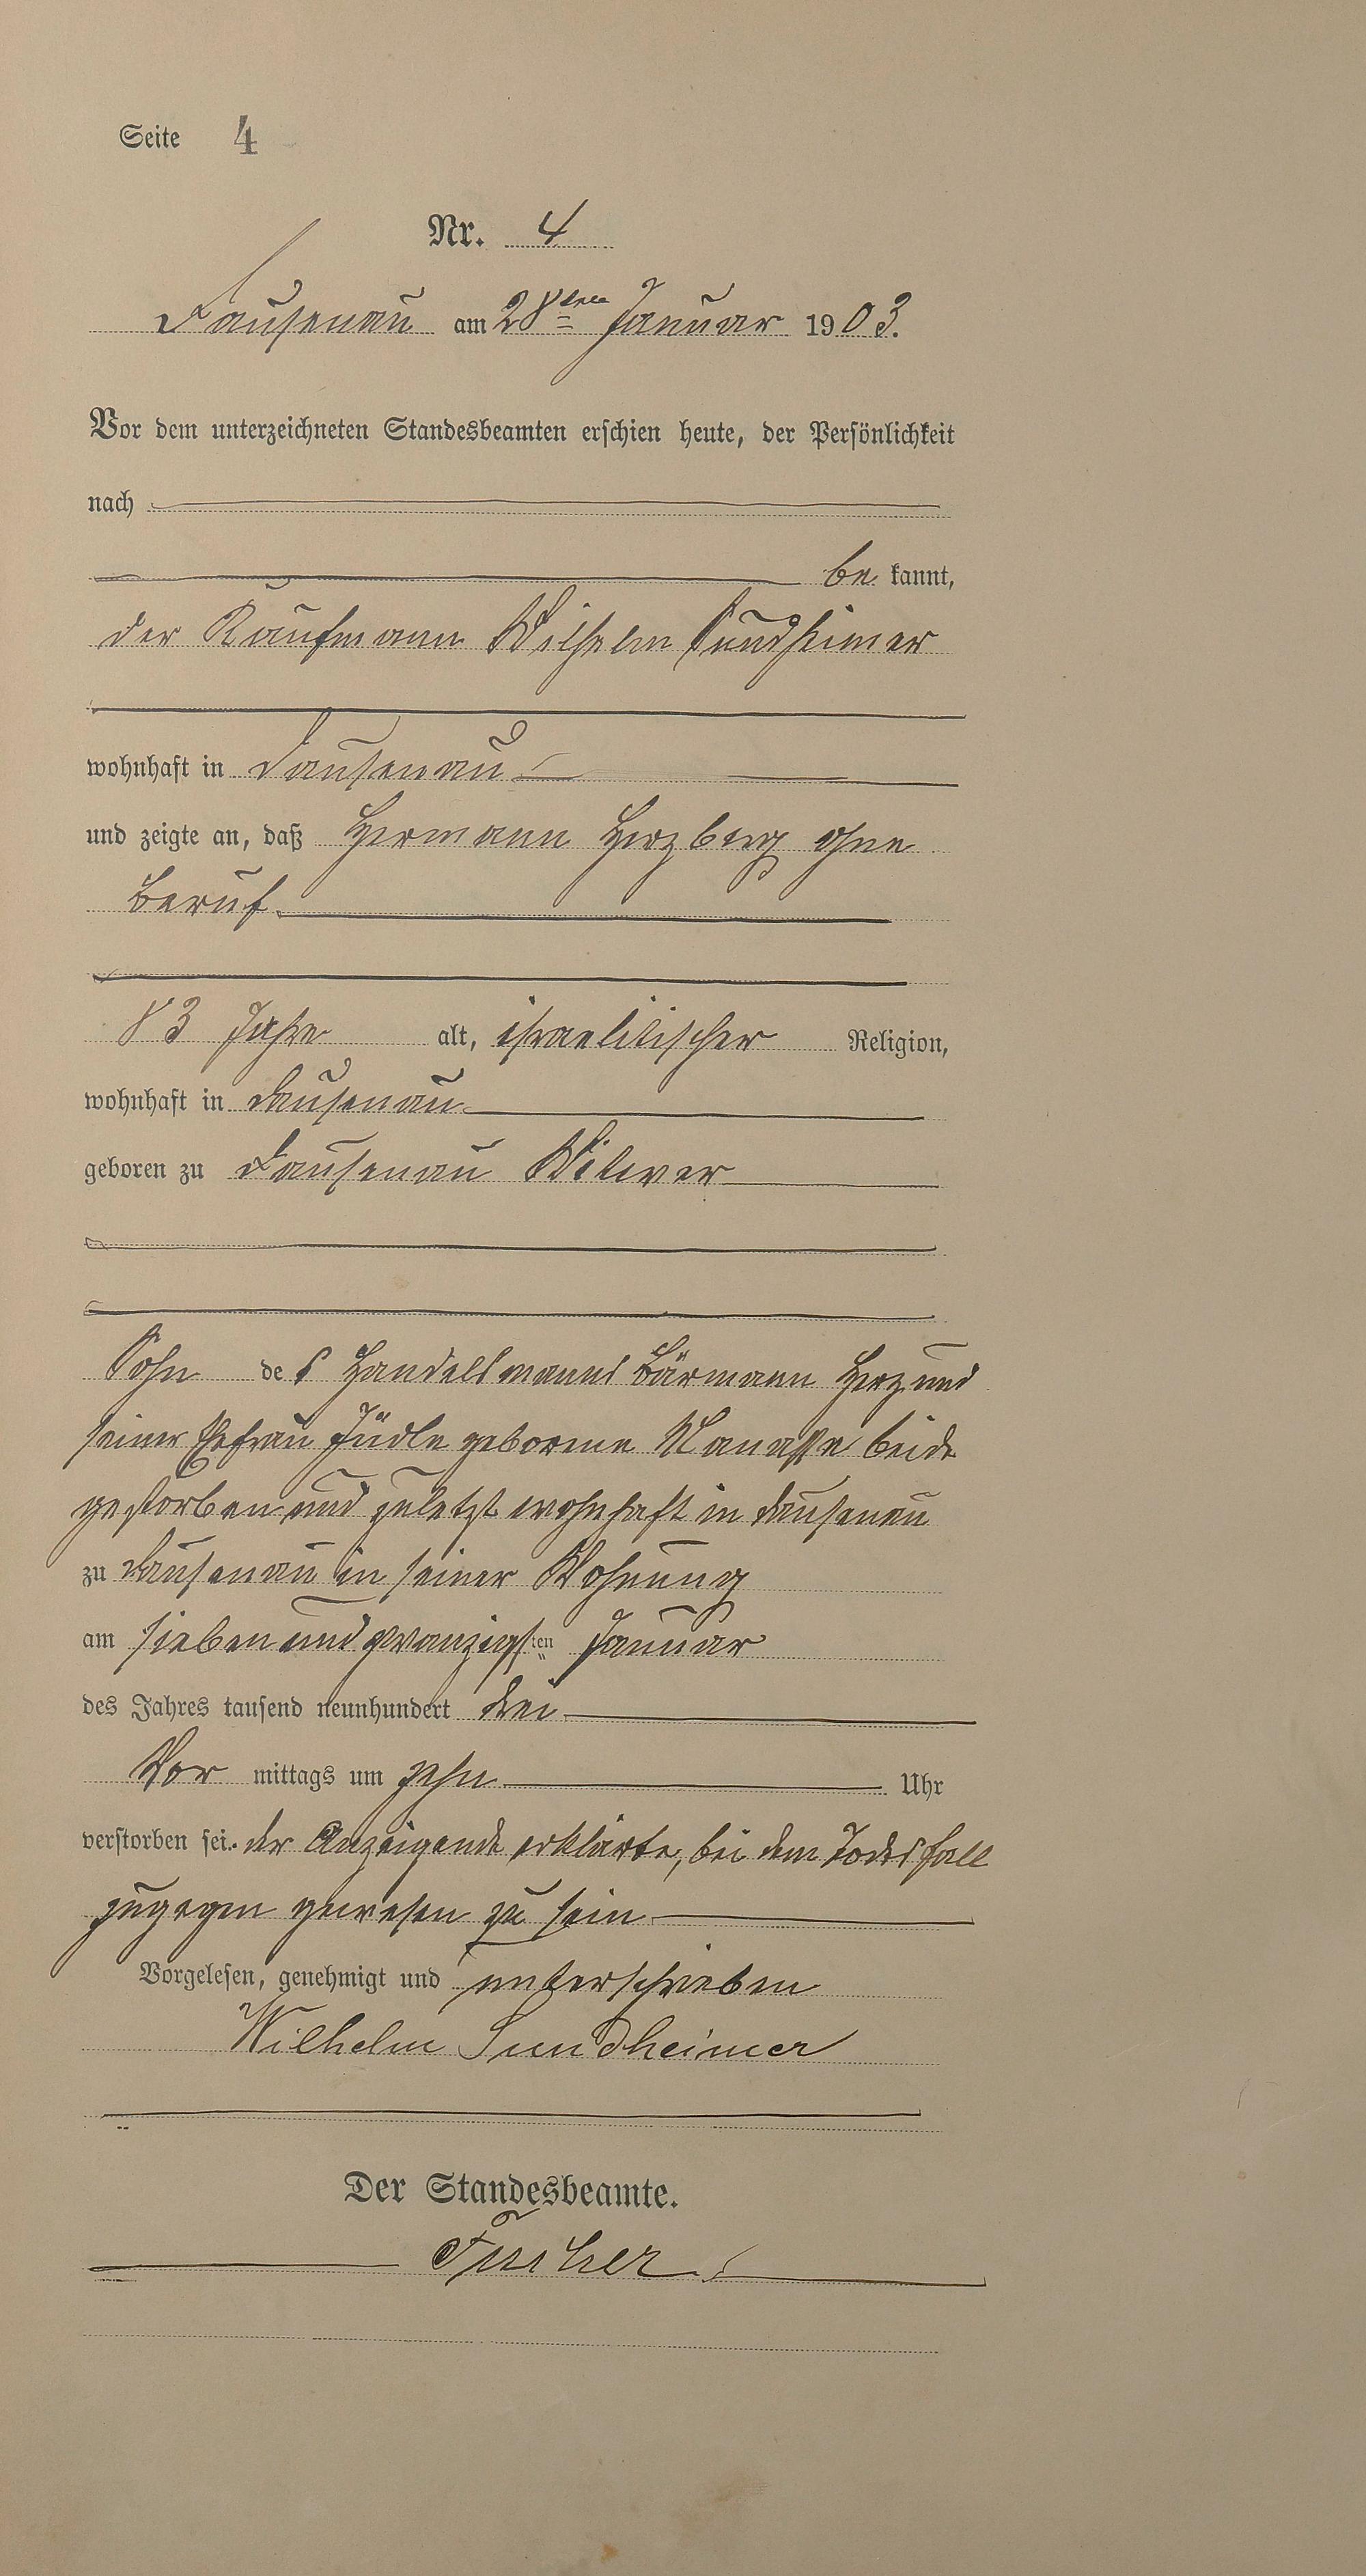 Seite 4
Nr. 4
Dausenau am 28ten Januar 1903.
Vor dem unterzeichneten Standesbeamten erschien heute, der Persönlichkeit
nach
be kannt,
der Kaufmann Wilhelm Sundheimer
wohnhaft in Dausenau
und zeigte an, daß Hermann Herzberg ohne
Beruf
83 Jahre alt, israelitischer Religion,
wohnhaft in Dausenau
geboren zu Dausenau Witwer
Sohn des Handelsmanns Bärmann Herz und
seiner Ehefrau Jüdle geborene Manasse beide
gestorben und zuletzt wohnhaft in Dausenau
zu Dausenau in seiner Wohnung
am sieben und zwanzigsten Januar
des Jahres tausend neunhundert drei
Vor mittags um zehn Uhr
verstorben sei. der Anzeigende erklärte, bei dem Todesfall
zugegen gewesen zu sein
Vorgelesen, genehmigt und unterschrieben
Wilhelm Sundheimer
Der Standesbeamte.